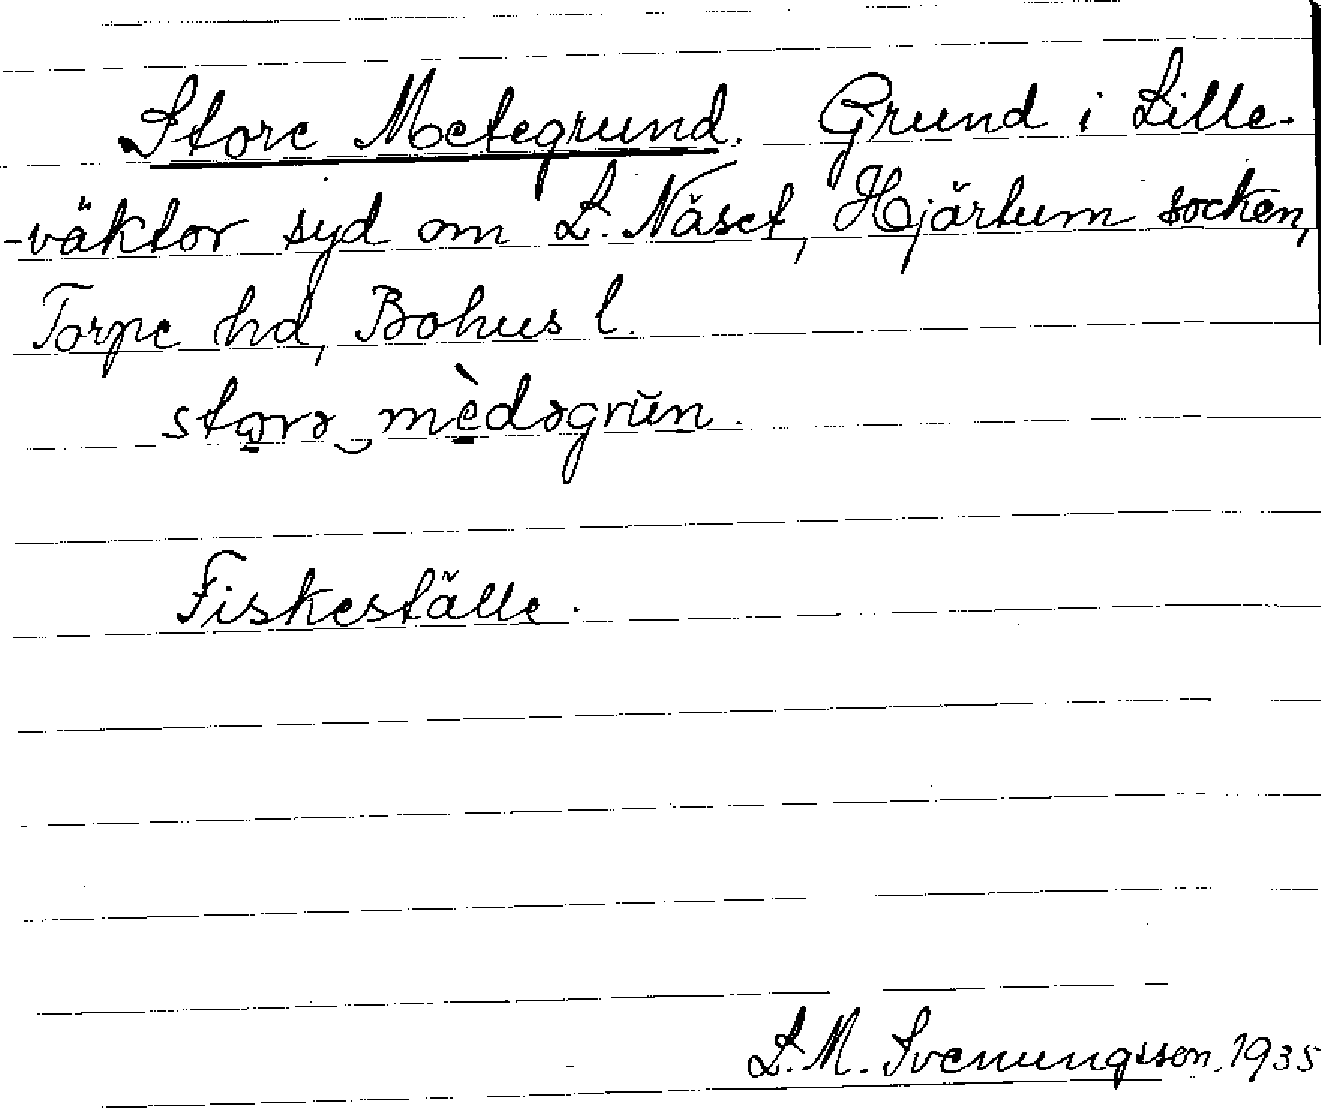 Store Metegrund. Grund i Lille-
-väktor syd om L. Näset, Hjärtum socken,
Torpe hd, Bohus l.
storə mèdəgrŭn.
Fiskeställe.
L. M. Svenungsson. 1935